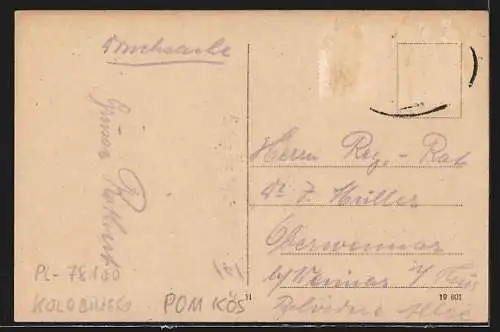 Drucksache
Gruss
Herrn Reg.-Rat
Dr. J. Müller
Oberweimar
b/Weimar i/Thür
Belvedere Allee
11
19 601
PL-78100
KOLOBRZEG
POM KÖS